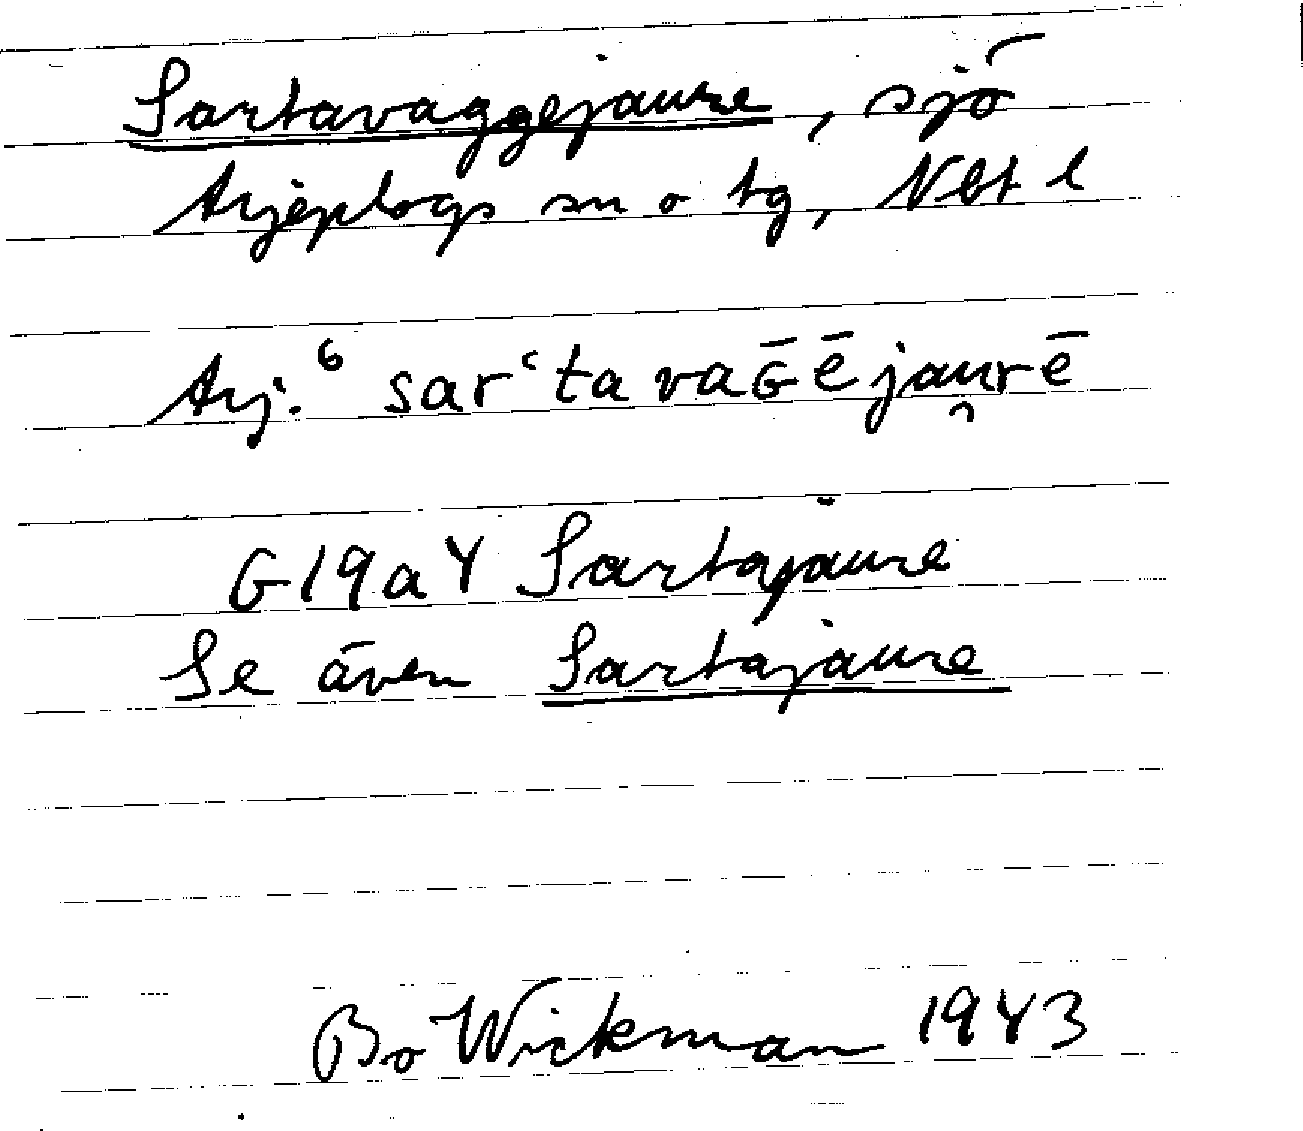 Sartavaggejaure, sjö
Arjeplogs sn o tg, Nbt l
Arj.⁶ sarʿta vaɢ̄ējau̯rē
G19a4 Sartajaure
Se även Sartajaure
Bo Wickman 1943